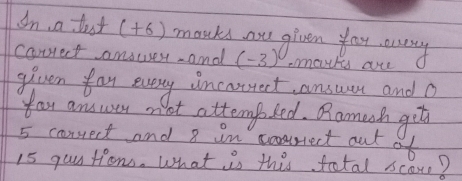 In a test (+6) marks are given for every
correct answer and (-3) marks are
given for every incorrect answer and 0
for answer not attempted. Ramesh gets
5 correct and 8 in correct out of
15 qus tions. what is this total score?